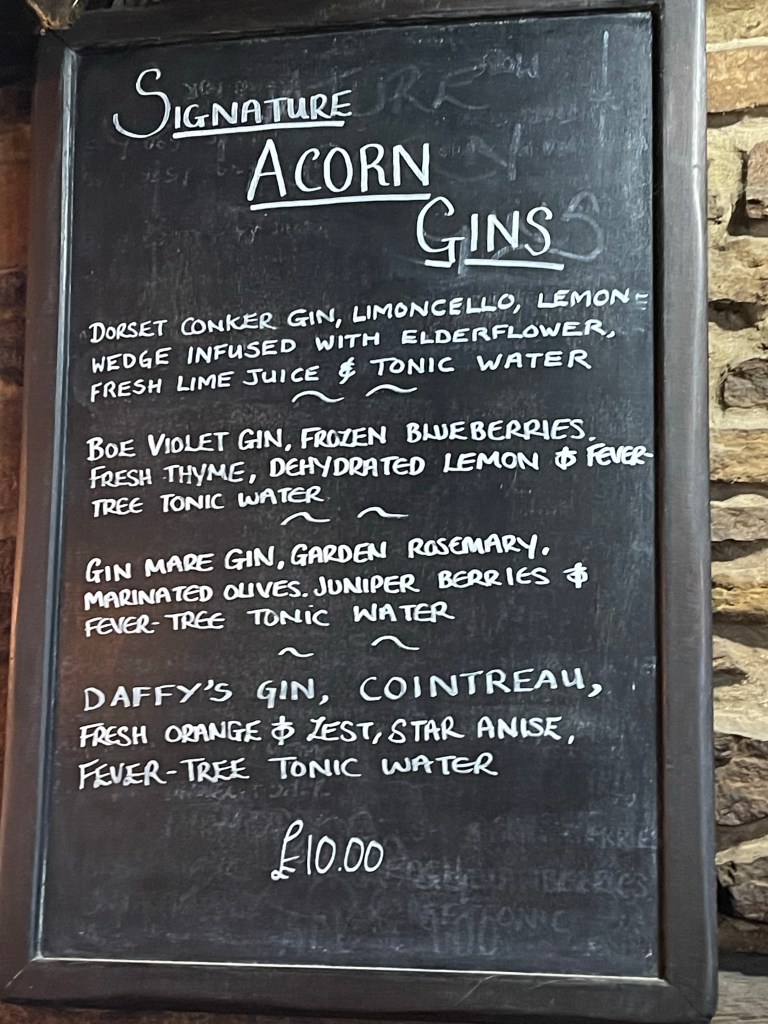 SIGNATURE
ACORN
GINS
DORSET CONKER GIN, LIMONCELLO, LEMON-
WEDGE INFUSED WITH ELDERFLOWER,
FRESH LIME JUICE & TONIC WATER
BOE VIOLET GIN, FROZEN BLUEBERRIES.
FRESH THYME, DEHYDRATED LEMON & FEVER-
TREE TONIC WATER
GIN MARE GIN, GARDEN ROSEMARY.
MARINATED OLIVES. JUNIPER BERRIES &
FEVER-TREE TONIC WATER
DAFFY'S GIN, COINTREAU,
FRESH ORANGE & ZEST, STAR ANISE,
FEVER-TREE TONIC WATER
£10.00